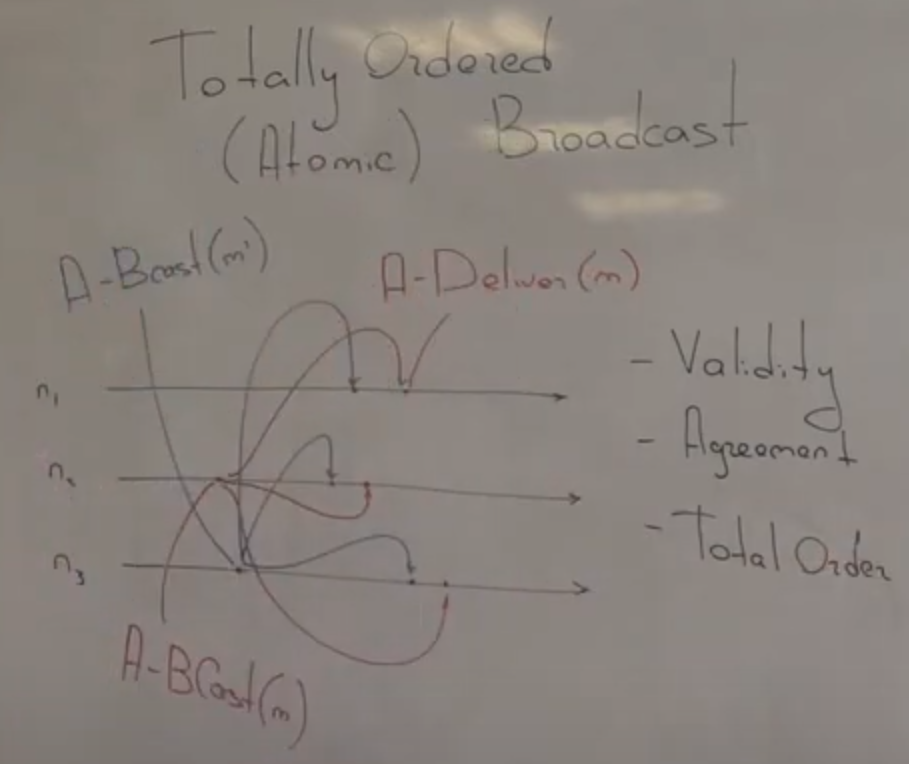 Totally Ordered
(Atomic) Broadcast
A-Bcast(m')
A-Deliver(m)
n₁
n₂
n₃
A-BCast(m)
- Validity
- Agreement
- Total Order